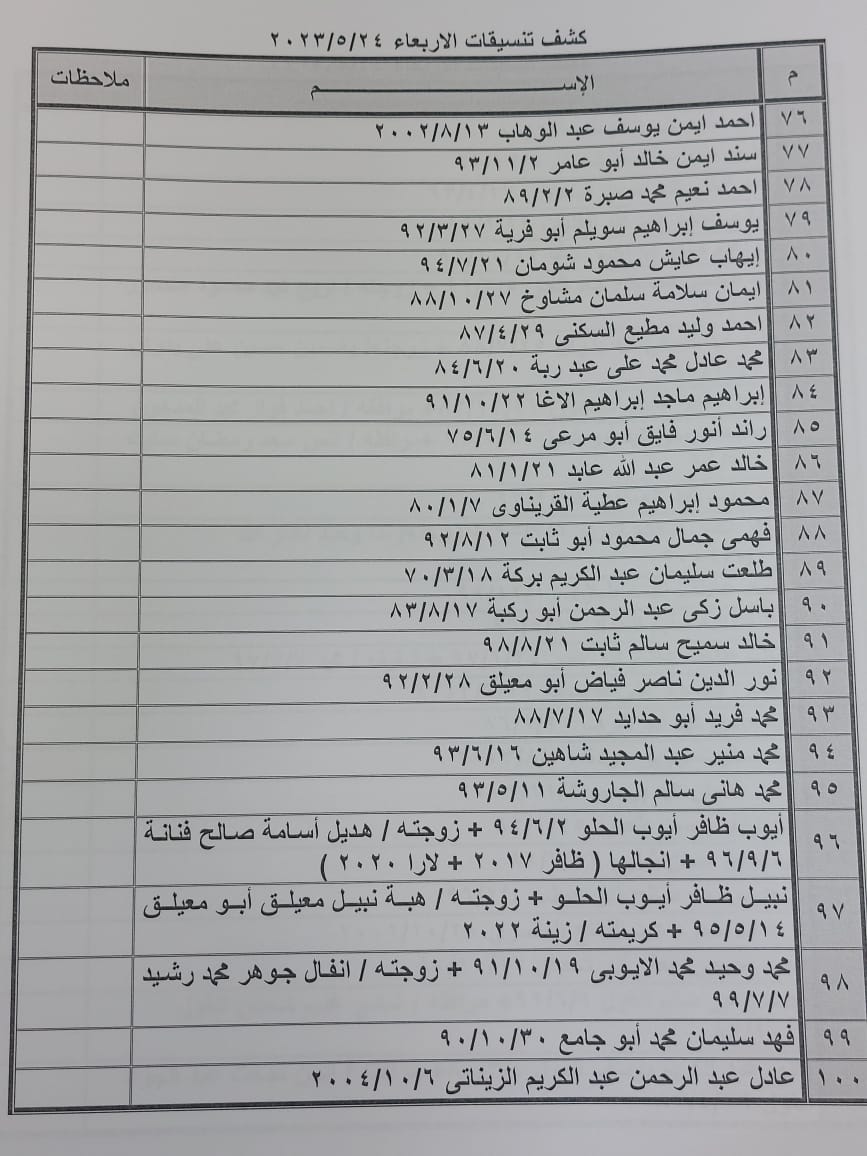 كشف تنسيقات الاربعاء ٢٠٢٣/٥/٢٤
م الإســـــــــــــم ملاحظات
٧٦ احمد ايمن يوسف عبد الوهاب ٢٠٠٢/٨/١٣
٧٧ سند ايمن خالد أبو عامر ٩٣/١١/٢
٧٨ احمد نعيم محمد صبرة ٨٩/٢/٢
٧٩ يوسف إبراهيم سويلم أبو فرية ٩٢/٣/٢٧
٨٠ إيهاب عايش محمود شومان ٩٤/٧/٢١
٨١ ايمان سلامة سلمان مشاوخ ٨٨/١٠/٢٧
٨٢ احمد وليد مطيع السكنى ٨٧/٤/٢٩
٨٣ محمد عادل محمد على عبد ربة ٨٤/٦/٢٠
٨٤ إبراهيم ماجد إبراهيم الاغا ٩١/١٠/٢٢
٨٥ رائد أنور فايق أبو مرعى ٧٥/٦/١٤
٨٦ خالد عمر عبد الله عابد ٨١/١/٢١
٨٧ محمود إبراهيم عطية القريناوى ٨٠/١/٧
٨٨ فهمى جمال محمود أبو ثابت ٩٢/٨/١٢
٨٩ طلعت سليمان عبد الكريم بركة ٧٠/٣/١٨
٩٠ باسل زكى عبد الرحمن أبو ركبة ٨٣/٨/١٧
٩١ خالد سميح سالم ثابت ٩٨/٨/٢١
٩٢ نور الدين ناصر فياض أبو معيلق ٩٢/٢/٢٨
٩٣ محمد فريد أبو حدايد ٨٨/٧/١٧
٩٤ محمد منير عبد المجيد شاهين ٩٣/٦/١٦
٩٥ محمد هانى سالم الجاروشة ٩٣/٥/١١
٩٦ أيوب ظافر أيوب الحلو ٩٤/٦/٢ + زوجته / هديل أسامة صالح فنانة
٩٦/٩/٦ + انجالها ( ظافر ٢٠١٧ + لارا ٢٠٢٠ )
٩٧ نبيل ظافر أيوب الحلو + زوجته / هبة نبيل معيلق أبو معيلق
٩٥/٥/١٤ + كريمته / زينة ٢٠٢٢
٩٨ محمد وحيد محمد الايوبى ٩١/١٠/١٩ + زوجته / انفال جوهر محمد رشيد
٩٩/٧/٧
٩٩ فهد سليمان محمد أبو جامع ٩٠/١٠/٣٠
١٠٠ عادل عبد الرحمن عبد الكريم الزيناتى ٢٠٠٤/١٠/٦